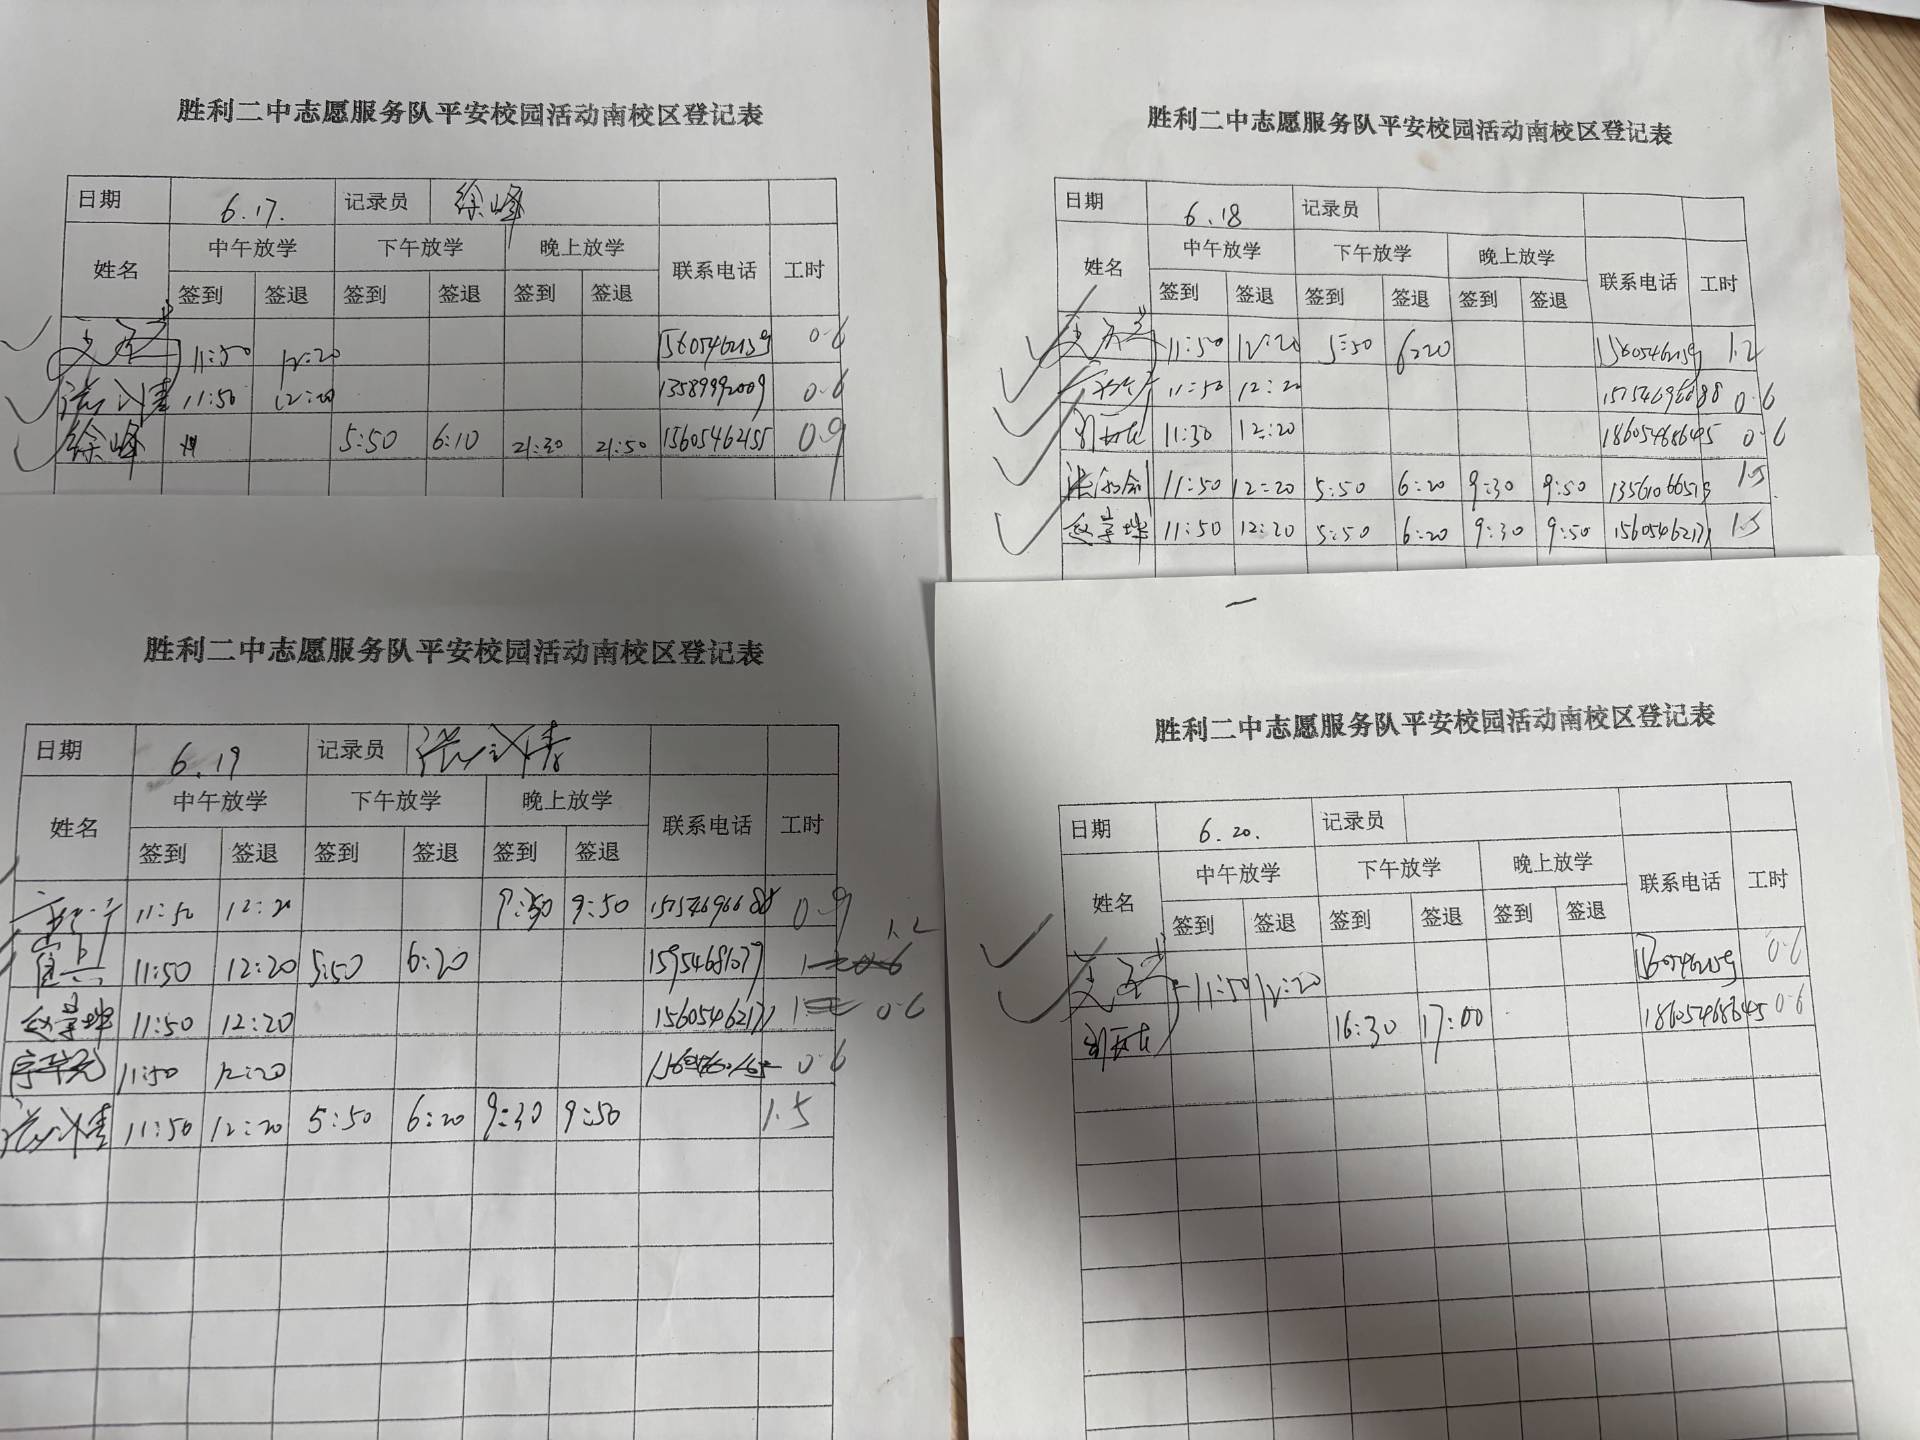 胜利二中志愿服务队平安校园活动南校区登记表
日期 6.17. 记录员 徐峰
姓名 中午放学 下午放学 晚上放学 联系电话 工时
签到 签退 签到 签退 签到 签退
11:50 12:20 15605462159 0.6
11:50 12:20 13589992009 0.6
徐峰 5:50 6:10 21:30 21:50 15605462155 0.9
胜利二中志愿服务队平安校园活动南校区登记表
日期 6.18 记录员
姓名 中午放学 下午放学 晚上放学 联系电话 工时
签到 签退 签到 签退 签到 签退
11:50 12:20 5:50 6:20 15605462159 1.2
11:50 12:20 15754696688 0.6
11:30 12:20 18605468645 0.6
11:50 12:20 5:50 6:20 9:30 9:50 13561066513 1.5
11:50 12:20 5:50 6:20 9:30 9:50 15605462171 1.5
胜利二中志愿服务队平安校园活动南校区登记表
日期 6.19 记录员
姓名 中午放学 下午放学 晚上放学 联系电话 工时
签到 签退 签到 签退 签到 签退
11:50 12:20 9:30 9:50 0.9
11:50 12:20 5:50 6:20 15954681077 1.2
11:50 12:20 15605462171 0.6
11:50 12:20 0.6
11:50 12:20 5:50 6:20 9:30 9:50 1.5
胜利二中志愿服务队平安校园活动南校区登记表
日期 6.20. 记录员
姓名 中午放学 下午放学 晚上放学 联系电话 工时
签到 签退 签到 签退 签到 签退
11:50 12:20 0.6
16:30 17:00 18605468645 0.6